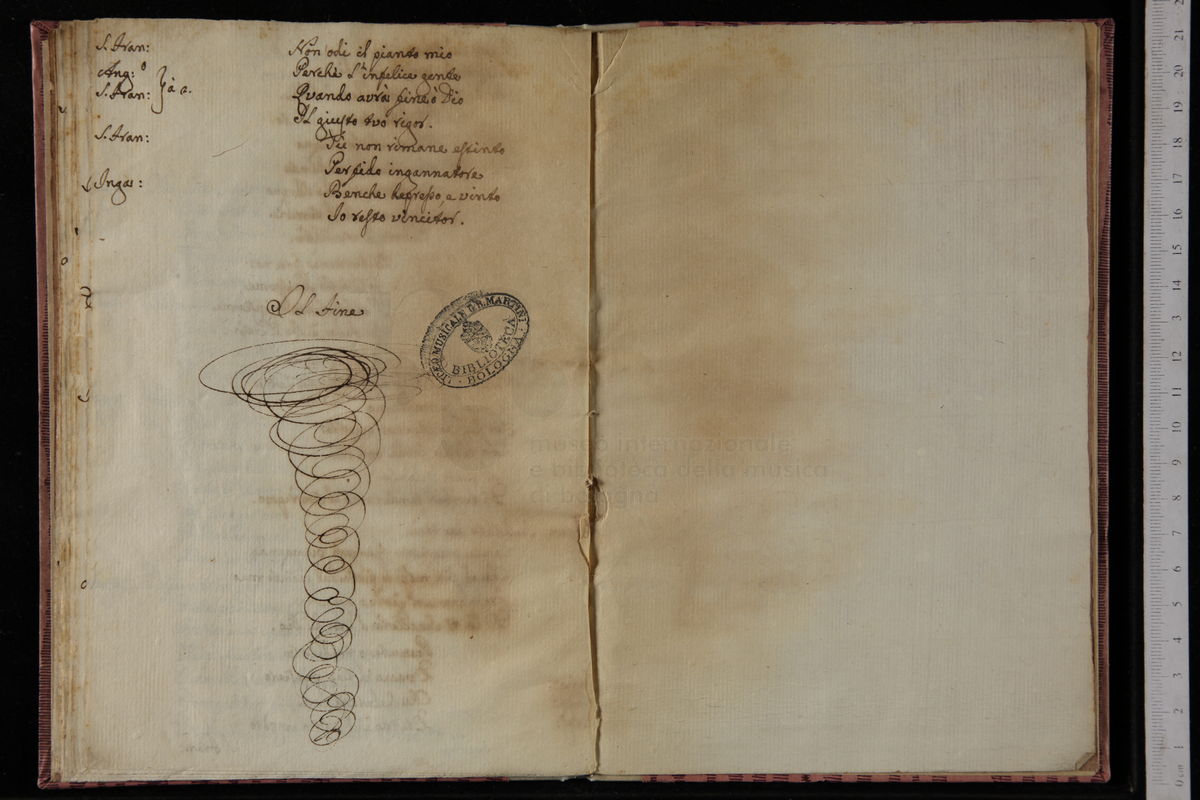 S. Fran: Non odi il pianto mio
Ang:º Perchè l'infelice gente
S. Fran: à 2. Quando avrà fine ò Dio
Il giusto tuo rigor.
S. Fran: Piè non rimane estinto
Perfido ingannatore
Inga: Benche depresso, e vinto
Io resto vincitor.
Il Fine
LICEO MUSICALE G.B. MARTINI
BIBLIOTECA
BOLOGNA
museo internazionale
e biblioteca della musica
di bologna